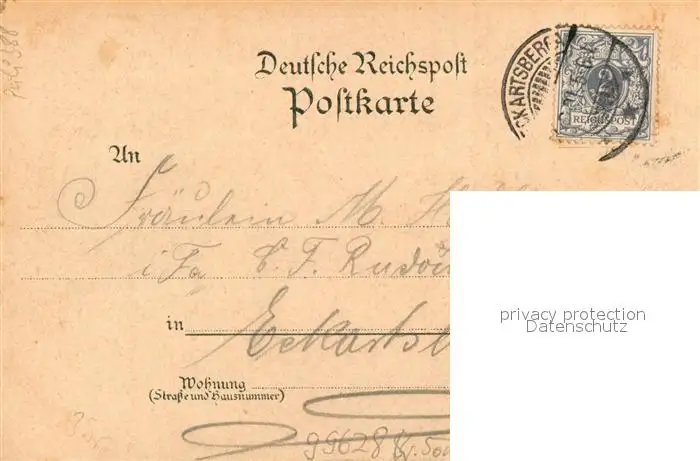 Deutsche Reichspost
Postkarte
ECKARTSBERG
2
REICHSPOST
An
Fräulein M. H
i Fa. C. F. Rudo
in Eckarts
Wohnung
(Straße und Hausnummer)
99628
privacy protection
Datenschutz